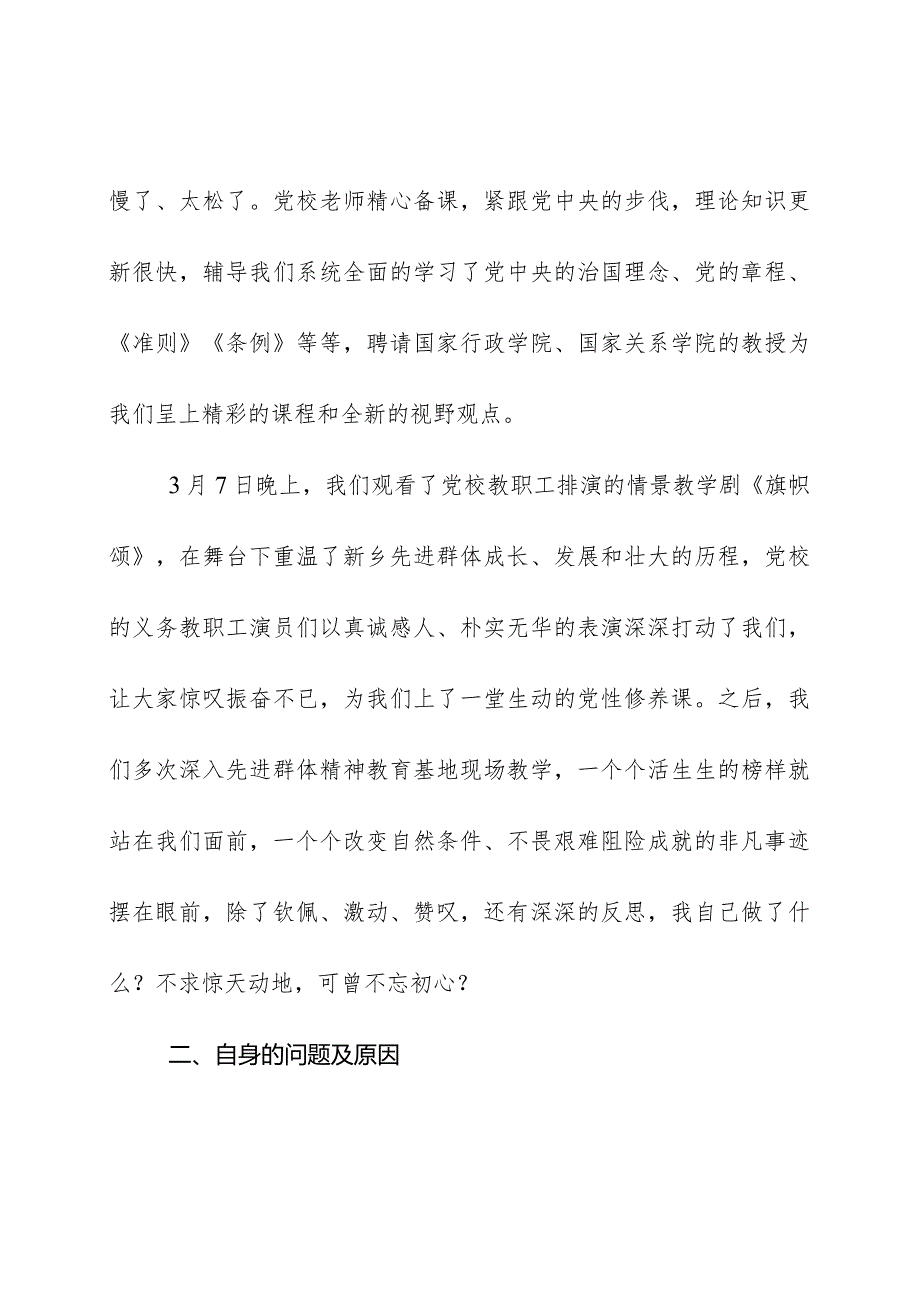 慢了、太松了。党校老师精心备课，紧跟党中央的步伐，理论知识更
新很快，辅导我们系统全面的学习了党中央的治国理念、党的章程、
《准则》《条例》等等，聘请国家行政学院、国家关系学院的教授为
我们呈上精彩的课程和全新的视野观点。
3 月 7 日晚上，我们观看了党校教职工排演的情景教学剧《旗帜
颂》，在舞台下重温了新乡先进群体成长、发展和壮大的历程，党校
的义务教职工演员们以真诚感人、朴实无华的表演深深打动了我们，
让大家惊叹振奋不已，为我们上了一堂生动的党性修养课。之后，我
们多次深入先进群体精神教育基地现场教学，一个个活生生的榜样就
站在我们面前，一个个改变自然条件、不畏艰难阻险成就的非凡事迹
摆在眼前，除了钦佩、激动、赞叹，还有深深的反思，我自己做了什
么？不求惊天动地，可曾不忘初心？
二、自身的问题及原因